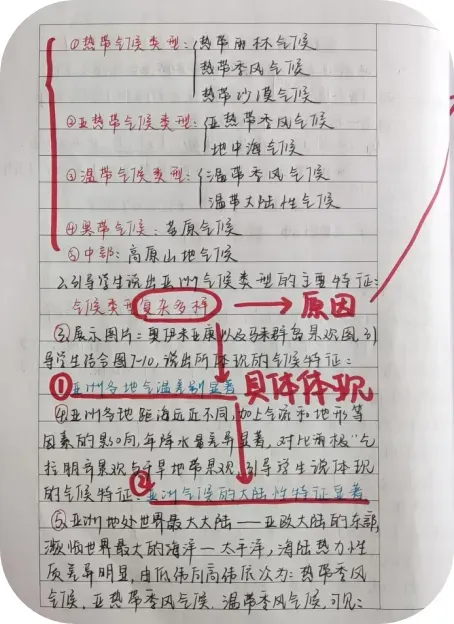 ①热带气候类型:热带雨林气候
热带季风气候
热带沙漠气候
②亚热带气候类型:亚热带季风气候
地中海气候
③温带气候类型:温带季风气候
温带大陆性气候
④寒带气候:苔原气候
⑤中部:高原山地气候
2.引导学生说出亚洲气候类型的主要特征:
气候类型复杂多样 原因
③展示图片:奥伊米亚康以及马来群岛景观图,引
导学生结合图7-10,说出所体现的气候特征:
①亚洲各地气温差别显著 具体体现
④亚洲各地距海远近不同,加上气流和地形等
因素的影响,年降水量差异显著,对比两极"乞
拉朋齐景观与干旱地带景观,引导学生说体现
的气候特征:②亚洲气候的大陆性特征显著
⑤亚洲地处世界最大大陆——亚欧大陆的东部,
濒临世界最大的海洋—太平洋,海陆热力性
质差异明显,由低纬向高纬依次为:热带季风
气候,亚热带季风气候,温带季风气候,可见: